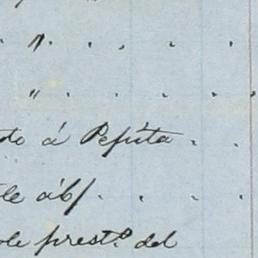 " . . . .
" . . . . .
do á Pepita . .
le áb/. . . .
ole prest.º del